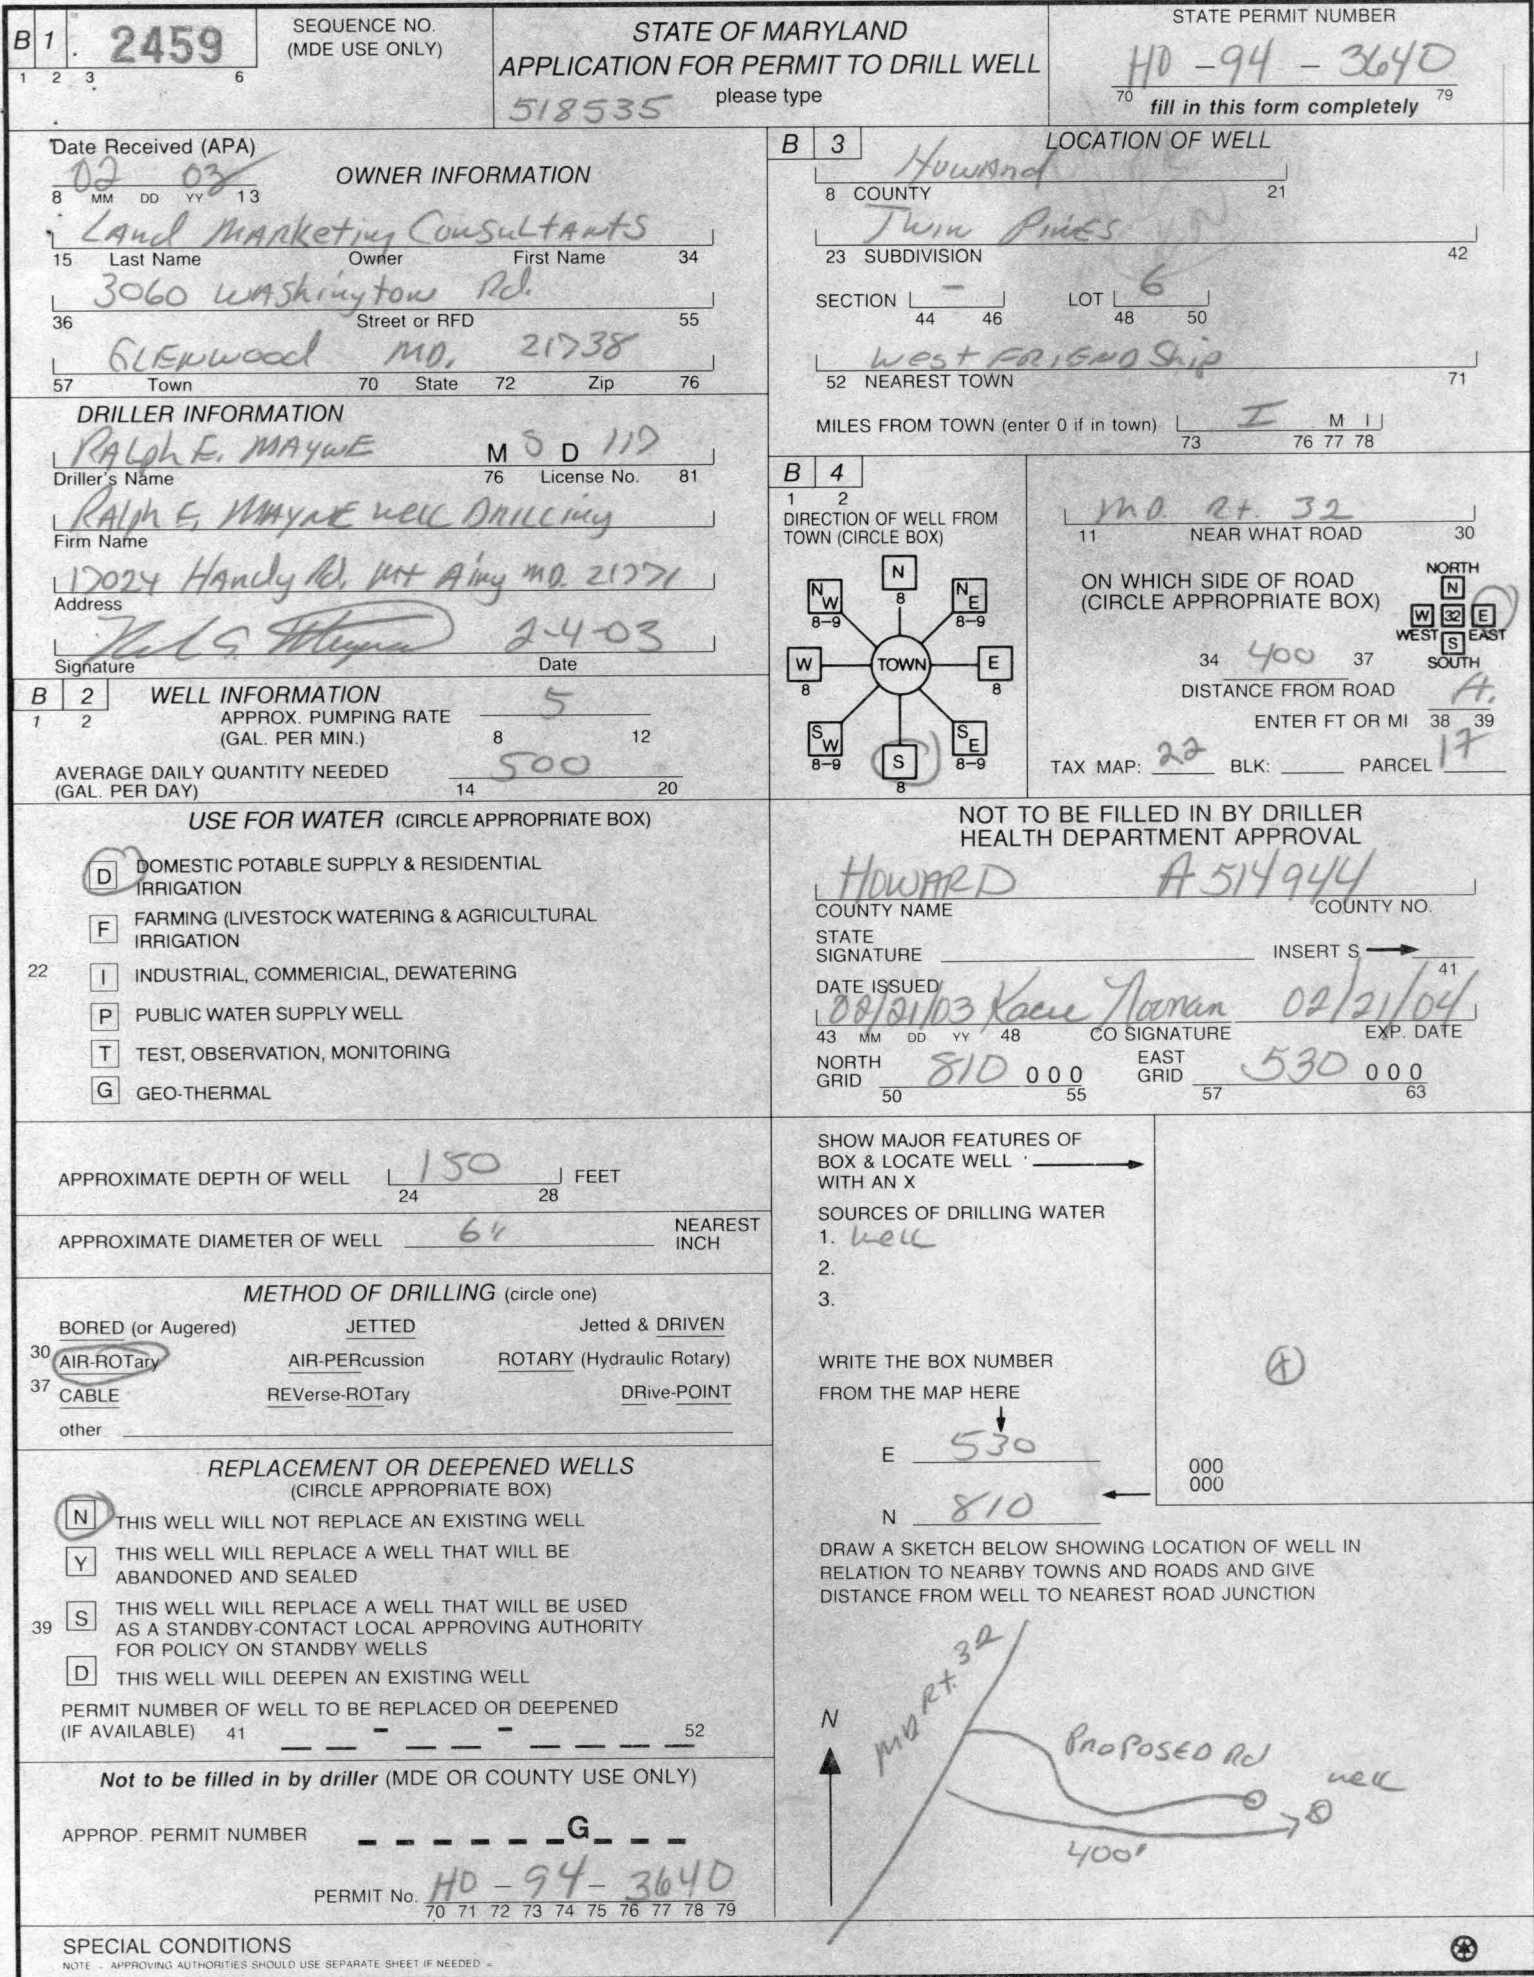 B 1 . 2459
1 2 3 6
SEQUENCE NO.
(MDE USE ONLY)
STATE OF MARYLAND
APPLICATION FOR PERMIT TO DRILL WELL
please type
518535
STATE PERMIT NUMBER
HO - 94 - 3640
70 79
fill in this form completely
Date Received (APA)
02 03
8 MM DD YY 13
OWNER INFORMATION
LAnd MARKeting ConSuLtAntS
15 Last Name Owner First Name 34
3060 WAShington Rd.
36 Street or RFD 55
GLENwood MD. 21738
57 Town 70 State 72 Zip 76
DRILLER INFORMATION
RALph E. MAYNE M S D 117
Driller's Name 76 License No. 81
RALph E. MAYNE well DRILLing
Firm Name
17024 HAndy Rd. Mt Airy MD. 21771
Address
2-4-03
Signature Date
B 2
1 2
WELL INFORMATION
APPROX. PUMPING RATE 5
(GAL. PER MIN.) 8 12
AVERAGE DAILY QUANTITY NEEDED 500
(GAL. PER DAY) 14 20
USE FOR WATER (CIRCLE APPROPRIATE BOX)
D DOMESTIC POTABLE SUPPLY & RESIDENTIAL
IRRIGATION
F FARMING (LIVESTOCK WATERING & AGRICULTURAL
IRRIGATION
22 I INDUSTRIAL, COMMERICIAL, DEWATERING
P PUBLIC WATER SUPPLY WELL
T TEST, OBSERVATION, MONITORING
G GEO-THERMAL
APPROXIMATE DEPTH OF WELL 150 FEET
24 28
APPROXIMATE DIAMETER OF WELL 6" NEAREST
INCH
METHOD OF DRILLING (circle one)
BORED (or Augered) JETTED Jetted & DRIVEN
30 AIR-ROTary AIR-PERcussion ROTARY (Hydraulic Rotary)
37 CABLE REVerse-ROTary DRive-POINT
other
REPLACEMENT OR DEEPENED WELLS
(CIRCLE APPROPRIATE BOX)
N THIS WELL WILL NOT REPLACE AN EXISTING WELL
Y THIS WELL WILL REPLACE A WELL THAT WILL BE
ABANDONED AND SEALED
39 S THIS WELL WILL REPLACE A WELL THAT WILL BE USED
AS A STANDBY-CONTACT LOCAL APPROVING AUTHORITY
FOR POLICY ON STANDBY WELLS
D THIS WELL WILL DEEPEN AN EXISTING WELL
PERMIT NUMBER OF WELL TO BE REPLACED OR DEEPENED
(IF AVAILABLE) 41 - - 52
Not to be filled in by driller (MDE OR COUNTY USE ONLY)
APPROP. PERMIT NUMBER G
PERMIT No. HO - 94 - 3640
70 71 72 73 74 75 76 77 78 79
SPECIAL CONDITIONS
NOTE - APPROVING AUTHORITIES SHOULD USE SEPARATE SHEET IF NEEDED -
B 3
LOCATION OF WELL
HowARd
8 COUNTY 21
Twin PinES
23 SUBDIVISION 42
SECTION - LOT 6
44 46 48 50
West FRIENDShip
52 NEAREST TOWN 71
MILES FROM TOWN (enter 0 if in town) I M I
73 76 77 78
B 4
1 2
DIRECTION OF WELL FROM
TOWN (CIRCLE BOX)
N
8
NW
8-9
NE
8-9
W
8
TOWN
E
8
SW
8-9
S
8
SE
8-9
MD. Rt. 32
11 NEAR WHAT ROAD 30
ON WHICH SIDE OF ROAD
(CIRCLE APPROPRIATE BOX)
NORTH
N
W 32 E
WEST S EAST
SOUTH
34 400 37
DISTANCE FROM ROAD
ft.
ENTER FT OR MI 38 39
TAX MAP: 22 BLK: PARCEL 17
NOT TO BE FILLED IN BY DRILLER
HEALTH DEPARTMENT APPROVAL
HOWARD A 514944
COUNTY NAME COUNTY NO.
STATE
SIGNATURE INSERT S
41
DATE ISSUED
02/21/03 Kacie Noonan 02/21/04
43 MM DD YY 48 CO SIGNATURE EXP. DATE
NORTH
GRID 810 000
50 55
EAST
GRID 530 000
57 63
SHOW MAJOR FEATURES OF
BOX & LOCATE WELL
WITH AN X
SOURCES OF DRILLING WATER
1. well
2.
3.
X
WRITE THE BOX NUMBER
FROM THE MAP HERE
E 530
000
000
N 810
DRAW A SKETCH BELOW SHOWING LOCATION OF WELL IN
RELATION TO NEARBY TOWNS AND ROADS AND GIVE
DISTANCE FROM WELL TO NEAREST ROAD JUNCTION
MD Rt. 32
N
PROPOSED Rd
well
400'